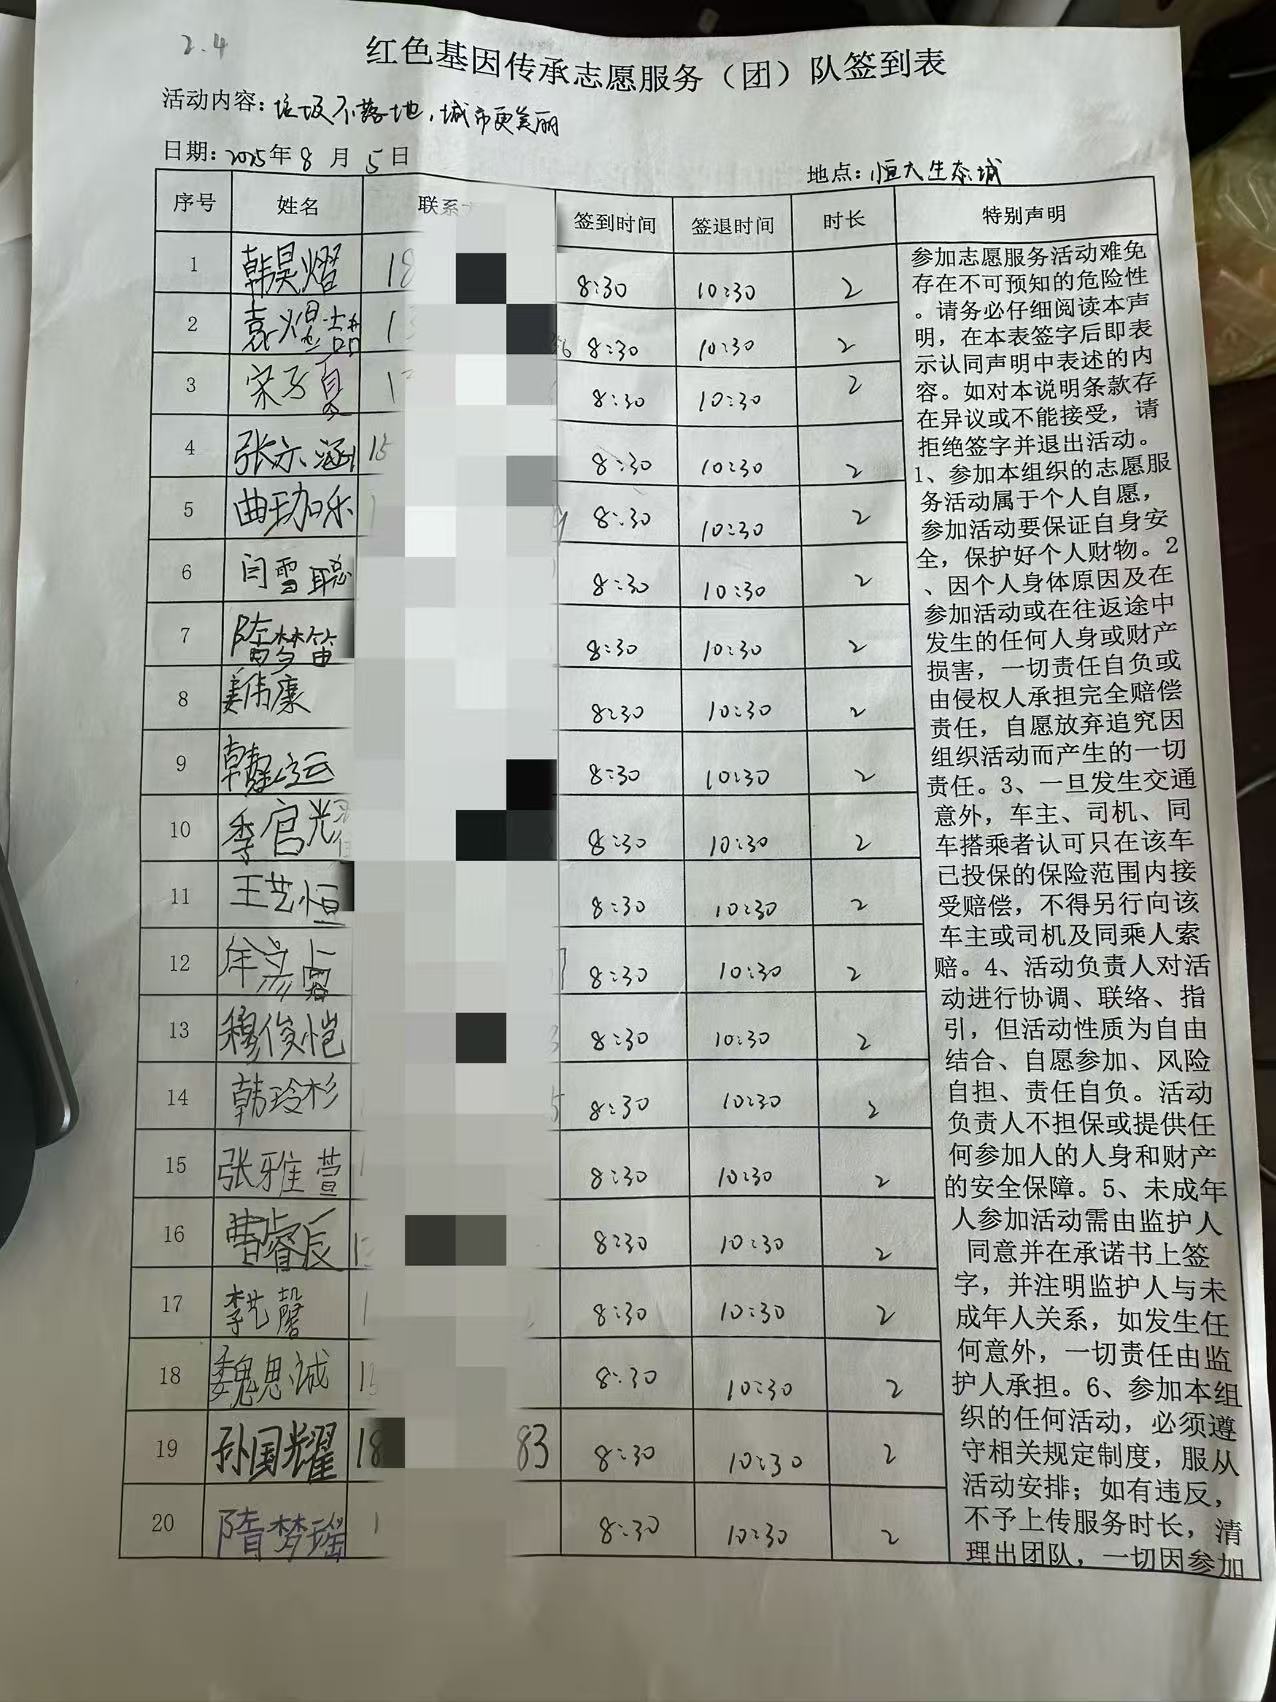 2.4
红色基因传承志愿服务（团）队签到表
活动内容：垃圾不落地，城市更美丽
日期：2025年8月5日
地点：恒大生态城
序号 姓名 联系 签到时间 签退时间 时长 特别声明
1 韩昊熠 18 8:30 10:30 2
2 袁煜喆 1 6 8:30 10:30 2
3 宋子夏 1 8:30 10:30 2
4 张亦涵 15 8:30 10:30 2
5 曲珈乐 1 8:30 10:30 2
6 闫雪聪 8:30 10:30 2
7 隋梦笛 8:30 10:30 2
8 姜伟廉 8:30 10:30 2
9 韩 运 8:30 10:30 2
10 季官光 8:30 10:30 2
11 王艺恒 8:30 10:30 2
12 徐 8:30 10:30 2
13 穆俊恺 8:30 10:30 2
14 韩玲杉 5 8:30 10:30 2
15 张雅萱 8:30 10:30 2
16 曹睿辰 1 8:30 10:30 2
17 李艺馨 1 8:30 10:30 2
18 魏思诚 1 8:30 10:30 2
19 孙国耀 18 83 8:30 10:30 2
20 隋梦瑶 1 8:30 10:30 2
参加志愿服务活动难免
存在不可预知的危险性
。请务必仔细阅读本声
明，在本表签字后即表
示认同声明中表述的内
容。如对本说明条款存
在异议或不能接受，请
拒绝签字并退出活动。
1、参加本组织的志愿服
务活动属于个人自愿，
参加活动要保证自身安
全，保护好个人财物。2
、因个人身体原因及在
参加活动或在往返途中
发生的任何人身或财产
损害，一切责任自负或
由侵权人承担完全赔偿
责任，自愿放弃追究因
组织活动而产生的一切
责任。3、一旦发生交通
意外，车主、司机、同
车搭乘者认可只在该车
已投保的保险范围内接
受赔偿，不得另行向该
车主或司机及同乘人索
赔。4、活动负责人对活
动进行协调、联络、指
引，但活动性质为自由
结合、自愿参加、风险
自担、责任自负。活动
负责人不担保或提供任
何参加人的人身和财产
的安全保障。5、未成年
人参加活动需由监护人
同意并在承诺书上签
字，并注明监护人与未
成年人关系，如发生任
何意外，一切责任由监
护人承担。6、参加本组
织的任何活动，必须遵
守相关规定制度，服从
活动安排；如有违反，
不予上传服务时长，清
理出团队，一切因参加